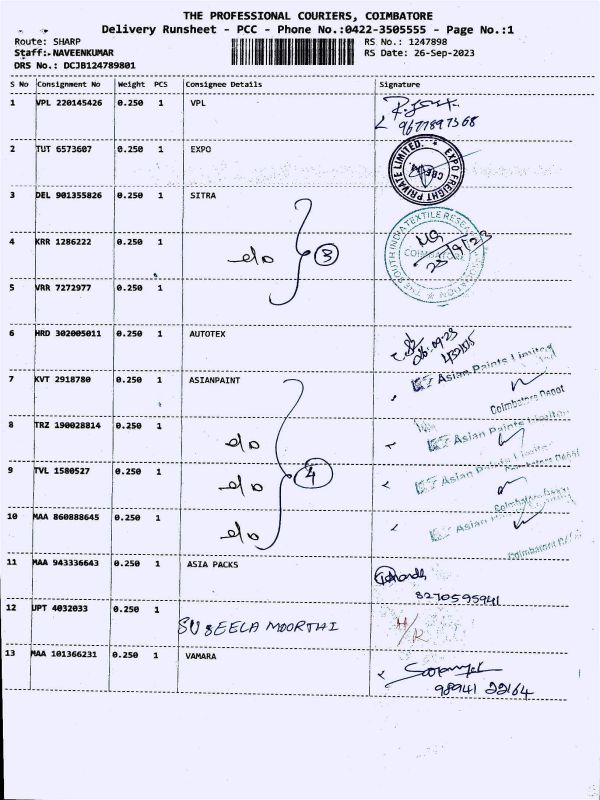 THE PROFESSIONAL COURIERS, COIMBATORE
Delivery Runsheet - PCC - Phone No.:0422-3505555 - Page No.:1
Route: SHARP RS No.: 1247898
Staff: NAVEENKUMAR RS Date: 26-Sep-2023
DRS No.: DCJB124789801
S No Consignment No Weight PCS Consignee Details Signature
1 VPL 220145426 0.250 1 VPL
9677897368
2 TUT 6573607 0.250 1 EXPO
EXPO FREIGHT PRIVATE LIMITED.
3 DEL 901355826 0.250 1 SITRA
THE SOUTH INDIA TEXTILE RESEARCH
COIMBATORE
4 KRR 1286222 0.250 1 do 3
5 VRR 7272977 0.250 1
6 HRD 302005011 0.250 1 AUTOTEX
7 KVT 2918780 0.250 1 ASIANPAINT Asian Paints Limited
Coimbatore Depot
8 TRZ 190028814 0.250 1 do Asian Paints Limited
9 TVL 1580527 0.250 1 do 4 Asian Paints Limited
Coimbatore Depot
10 MAA 860888645 0.250 1 do Asian Paints Limited
Coimbatore Depot
11 MAA 943336643 0.250 1 ASIA PACKS
8270595941
12 UPT 4032033 0.250 1 SUSEELA MOORTHI H/R
13 MAA 101366231 0.250 1 VAMARA
98941 22164